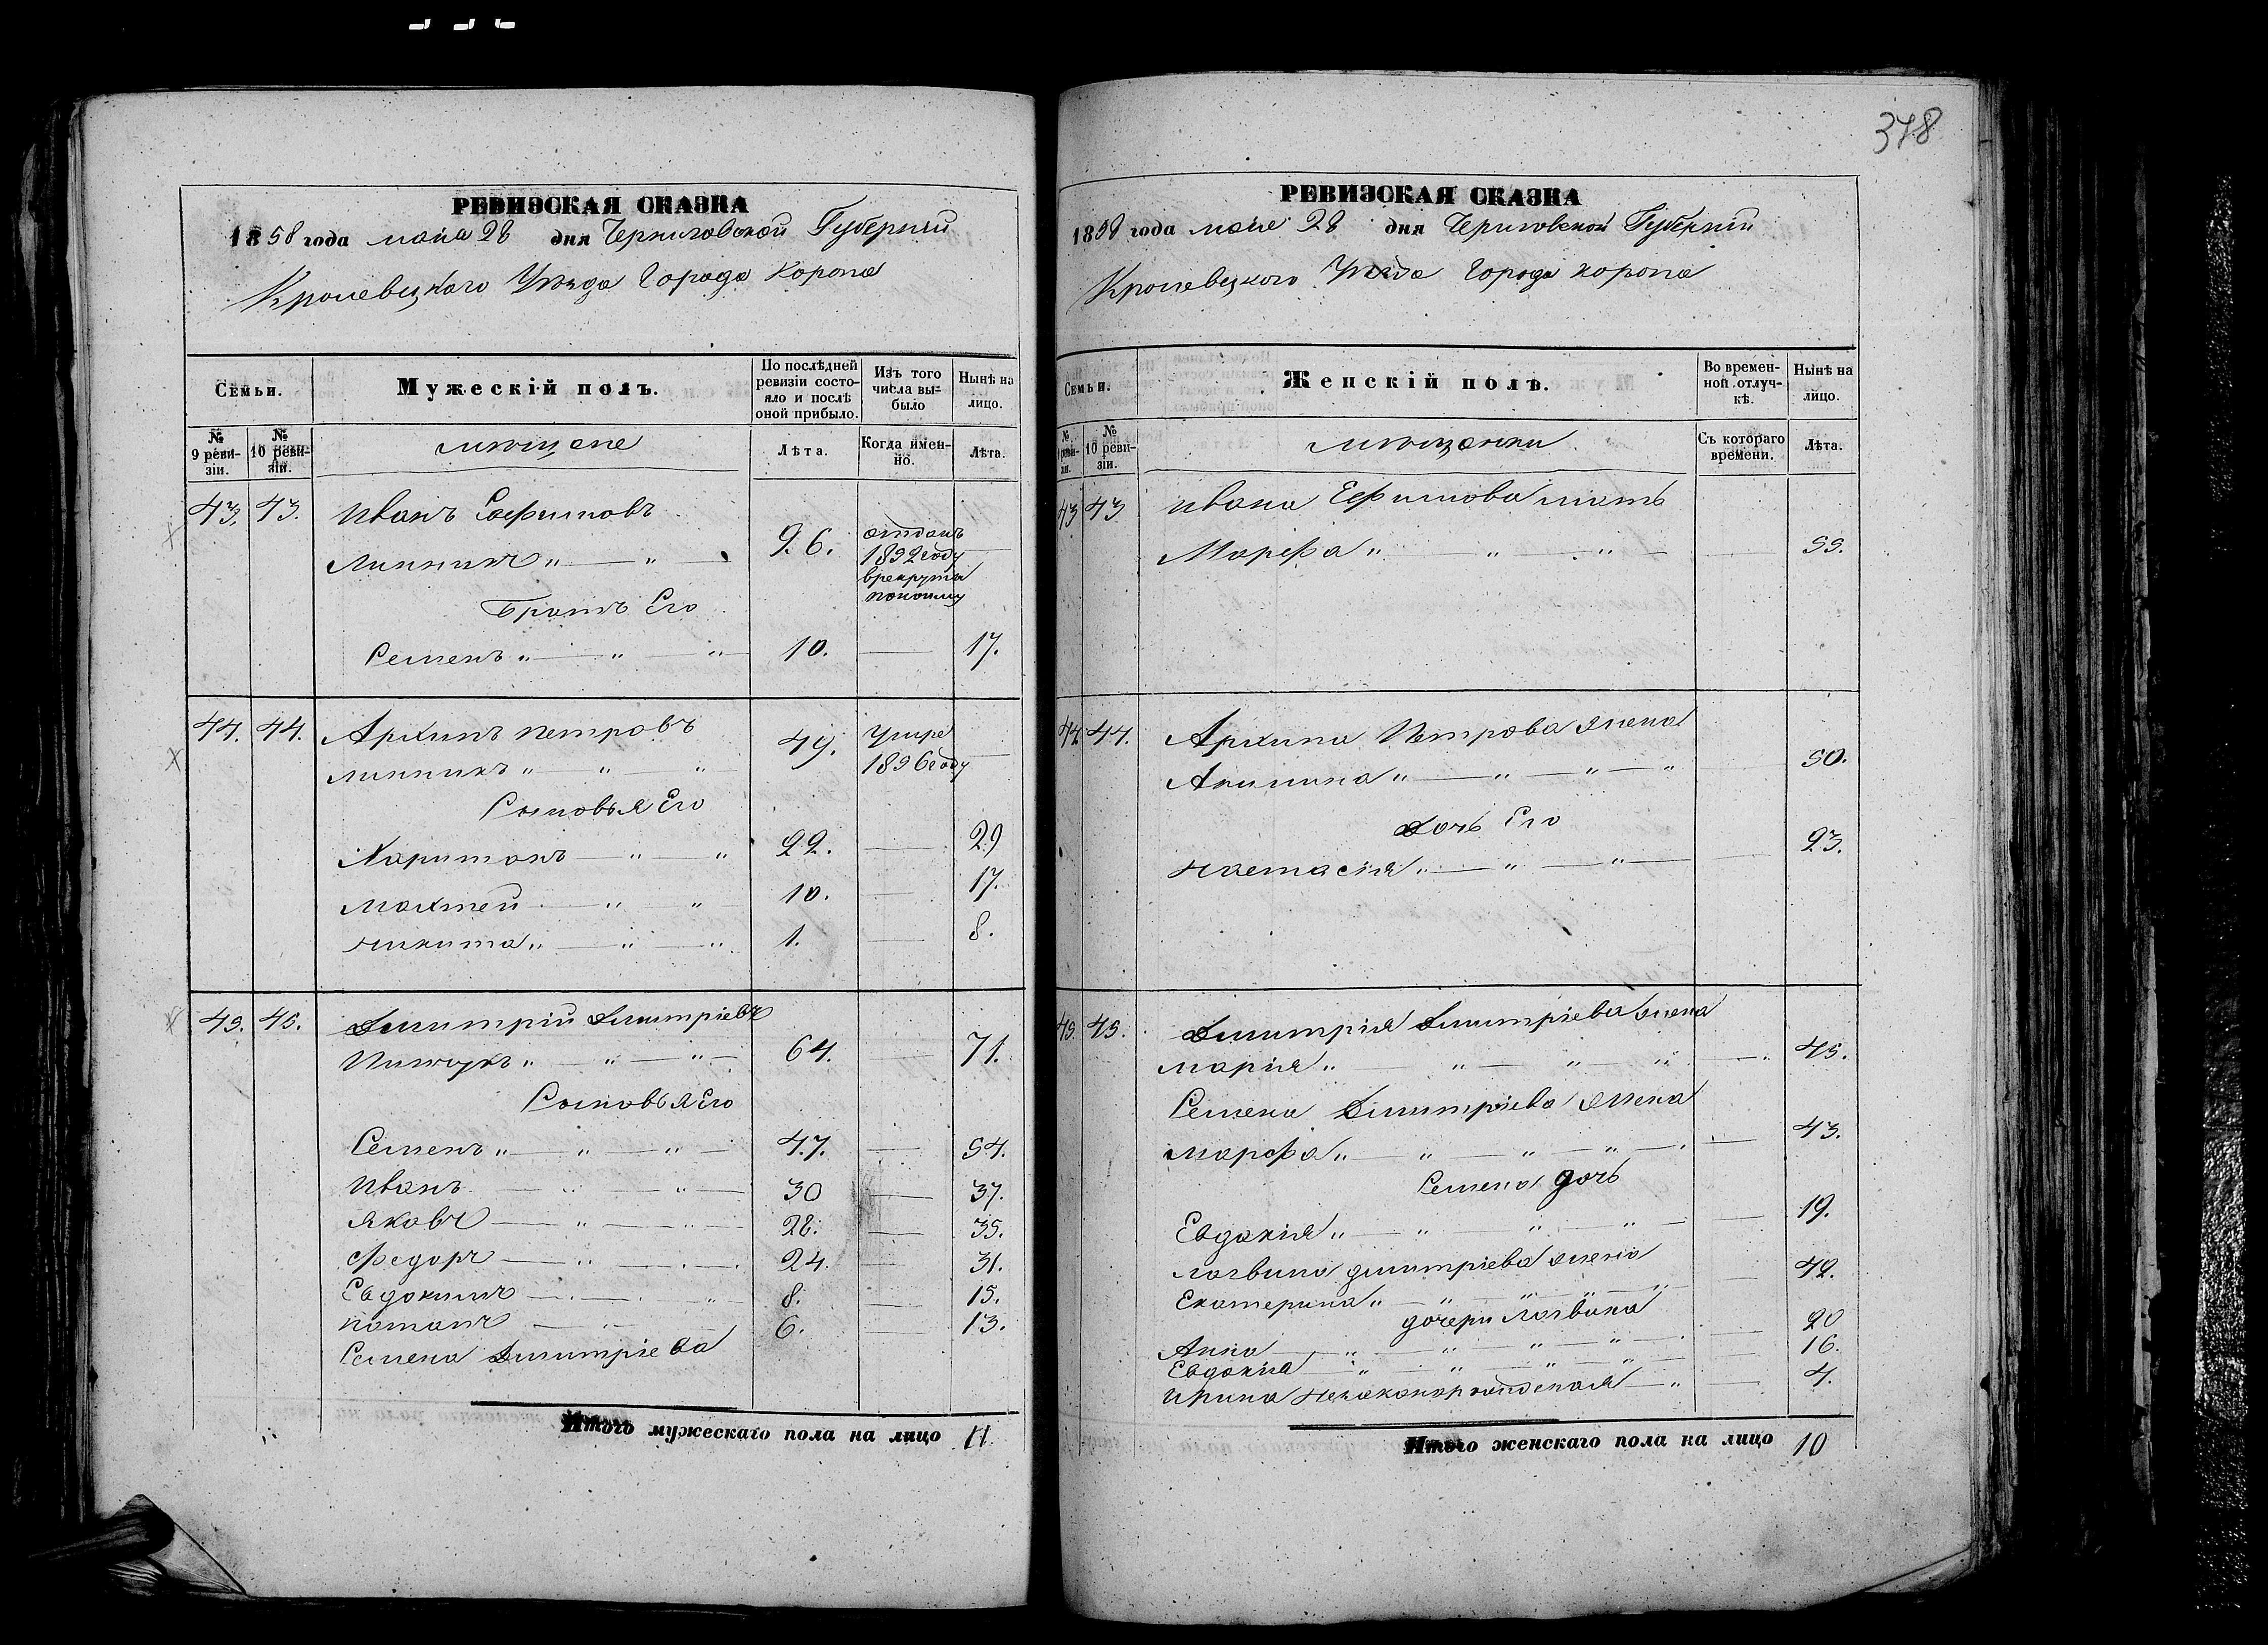 378
РЕВИЗСКАЯ СКАЗКА
1858 года мaia 28 дня Черниговской Губернiи
Кролевецкого Уѣзда Города Коропа
Семьи.
Мужескій полъ.
По послѣдней ревизіи состояло и послѣ оной прибыло.
Изъ того числа выбыло
Нынѣ на лицо.
№ 9 ревизіи.
№ 10 ревизіи.
мѣщане
Лѣта.
Когда именно.
Лѣта.
43. 43. Иванъ Ефимовъ
Линникъ „ — „ — 26. отданъ 1852 году в рекруты —
Братъ Его
Семенъ „ — „ „ 10. — 17.
44. 44. Архипъ Петровъ
Линникъ „ „ „ 49. Умре 1856 году —
Сыновья Его
Харитонъ — „ „ 22. — 29
Махтей — „ „ 10. — 17.
Никита „ — „ — „ 1. — 8.
45. 45. Дмитрій Дмитріевъ
Пищукъ „ — „ — „ — 64. — 71.
Сыновья Его
Семенъ „ — „ — „ — 47. — 54.
Иванъ — „ — „ — 30 — 37.
Яковъ — „ — „ — 28. — 35.
Федоръ — „ — 24. — 31.
Евдокимъ — „ 8. — 15.
Потапъ — „ — 6. — 13.
Семена Дмитріева
Итого мужескаго пола на лицо 11.
РЕВИЗСКАЯ СКАЗКА
1858 года маiе 28 дня Черниговской Губернiи
Кролевецкого Уѣзда Города Коропа
Семьи.
Женскій полъ.
Во временной отлучкѣ.
Нынѣ на лицо.
№ 9 ревизіи.
№ 10 ревизіи.
мѣщанки
Съ котораго времени.
Лѣта.
43 43 Ивана Ефимова мать
Марфа „ „ — „ — — 55.
44. 44. Архипа Петрова жена
Акилина „ — „ — „ — „ — 50.
Дочь Его
Настасія „ — „ — „ — — 23.
45. 45. Дмитрія Дмитріева жена
Марія „ — „ — „ — „ — 45.
Семена Дмитріева жена
Марфа „ — „ — „ — „ — — 43.
Семена дочь
Евдокія „ — „ — „ — „ — — 19.
Логвина Дмитріева жена
Екатерина „ — „ — „ — „ — 42.
дочери Логвина
Анна — „ — „ — „ — „ — 20
Евдокія „ — „ — „ — „ — 16.
Ирина — „ — 4.
Итого женскаго пола на лицо 10